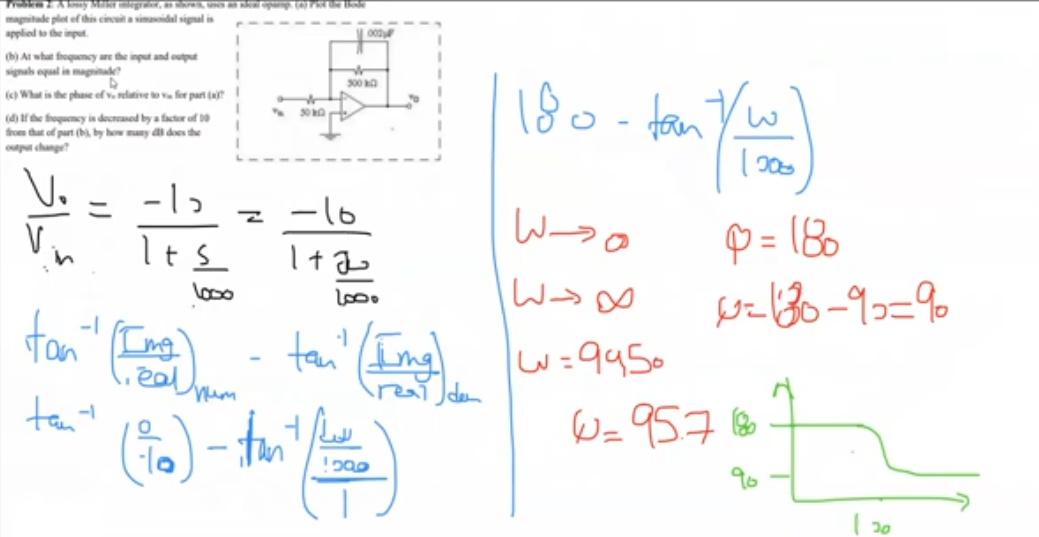 Problem 2: A lossy Miller integrator, as shown, uses an ideal opamp. (a) Plot the Bode
magnitude plot of this circuit a sinusoidal signal is
applied to the input.
(b) At what frequency are the input and output
signals equal in magnitude?
(c) What is the phase of vₒ relative to vᵢₙ for part (a)?
(d) If the frequency is decreased by a factor of 10
from that of part (b), by how many dB does the
output change?
.002μF
500 kΩ
50 kΩ
vᵢₙ
vₒ
Vₒ/Vᵢₙ = -10/(1 + S/1000) = -10/(1 + jω/1000)
tan⁻¹(Img/real)num - tan⁻¹(Img/real)den
tan⁻¹(0/-10) - tan⁻¹((ω/1000)/1)
180 - tan⁻¹(ω/1000)
ω → 0 φ = 180
ω → ∞ φ = 180 - 90 = 90
ω = 9950
φ = 95.7
180
90
100